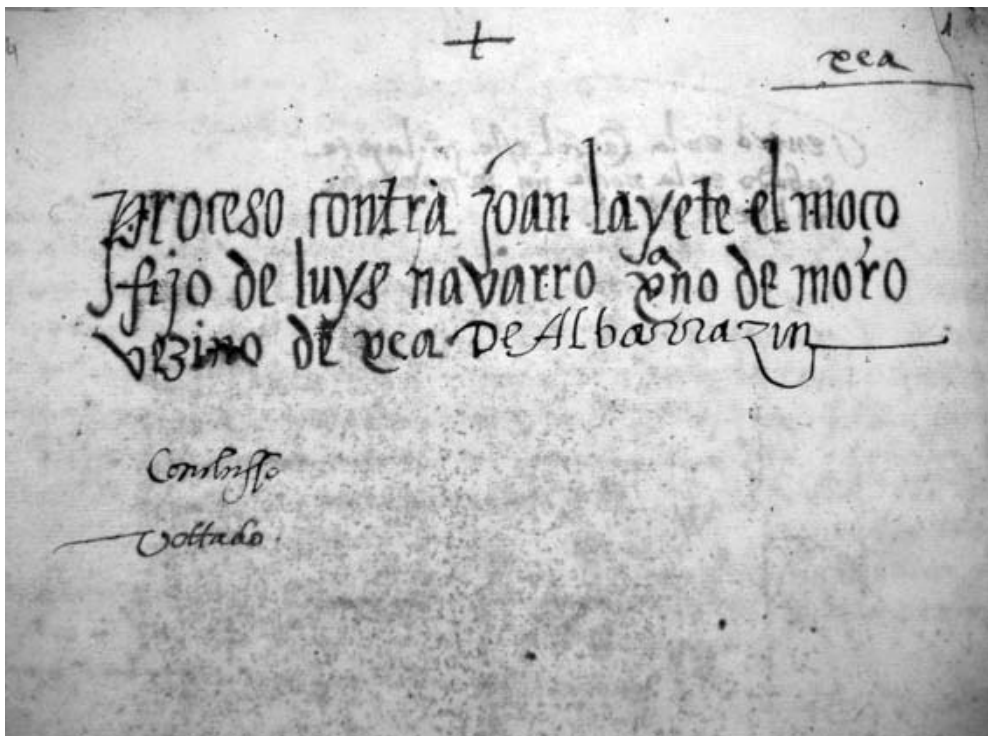 1
xea
proceso contra joan layete el moço
fijo de luys navarro xno de moro
vezino de xea De Albarrazin
Conclusso
Vottado